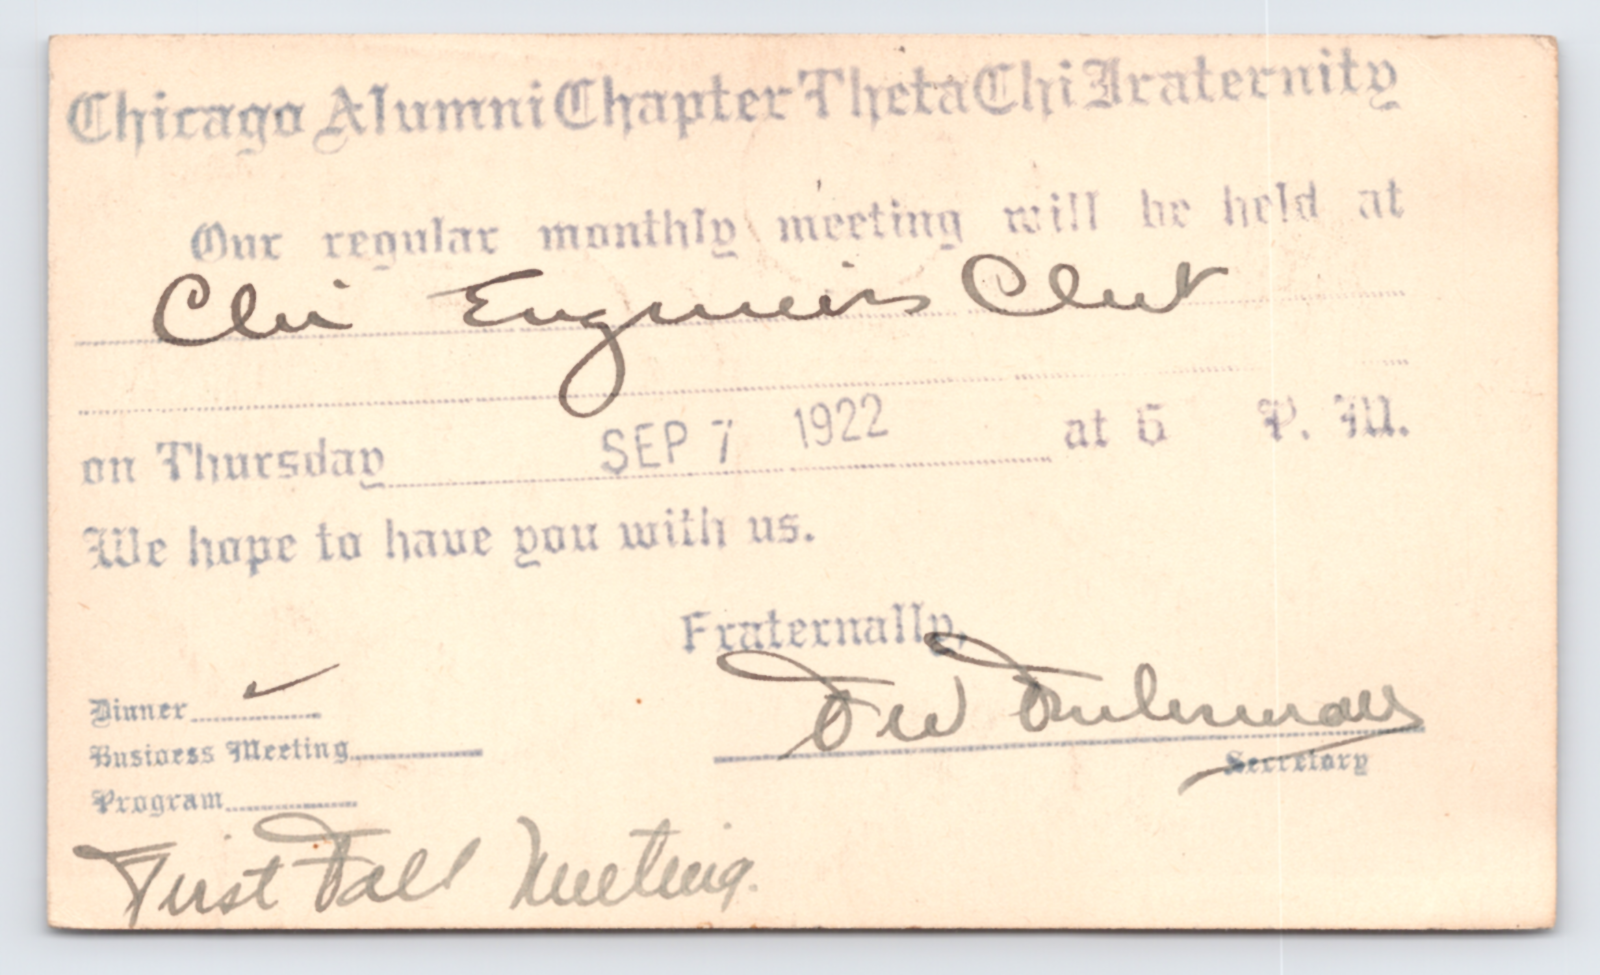 Chicago Alumni Chapter Theta Chi Fraternity
Our regular monthly meeting will be held at
Chi Engineers Club
on Thursday SEP 7 1922 at 6 P. M.
We hope to have you with us.
Fraternally,
Secretary
Dinner ✓
Business Meeting
Program
First Fall Meeting.